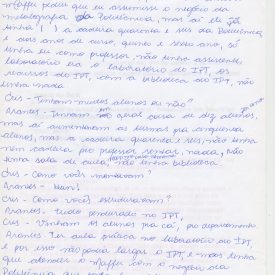 Maffei pediu que eu assumisse o negócio da
metalografia da Politécnica, mas aí eu já
tinha ( ) a cadeira quarenta e seis da Politécnica
e dois anos de curso, quinto e sexto ano, só
tinha eu como professor, não tinha assistentes
laboratório era o laboratório do IPT, os
recursos do IPT, com a biblioteca do IPT, não
tinha nada
Cris - Tinham muitos alunos ou não?
Aranes - Tinham em geral cerca de dez alunos,
mas aí aumentaram as turmas pra cinquenta
alunos, mas a cadeira quarenta e seis não tinha
nem cadeira pro professor sentar, nada, não
tinha sala de aula, não tinha biblioteca
Cris - Como vocês montavam?
Aranes - Hum!
Cris - Como vocês estruturavam?
Aranes - Tudo pendurado no IPT,
Cris - Vinham os alunos pra cá, pro departamento.
Aranes - Ter aula prática no laboratório do IPT
e por isso não podia largar o IPT, e mas tinha
que atender o Maffei com o negócio da